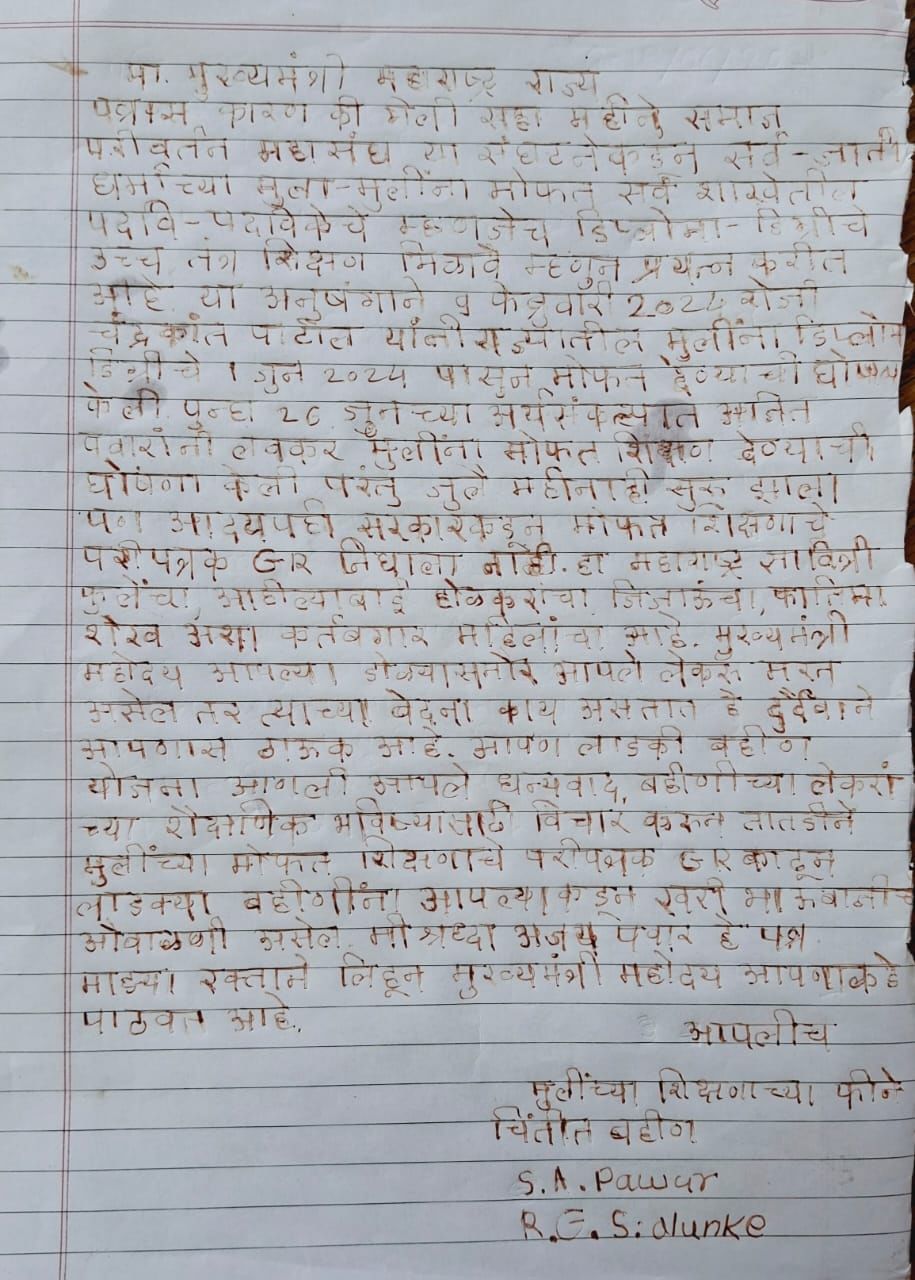 मा. मुख्यमंत्री महाराष्ट्र राज्य
पत्रास कारण की गेली सहा महीने समाज
परीवर्तन महासंघ या संघटनेकडून सर्व-जाती
धर्माच्या मुला-मुलींना मोफत सर्व शाखेतील
पदवि-पदविकेचे म्हणजेच डिप्लोमा-डिग्रीचे
उच्च तंत्र शिक्षण मिळावे म्हणुन प्रयत्न करीत
आहे. या अनुषंगाने ९ फेब्रुवारी 2024 रोजी
चंद्रकांत पाटील यांनी राज्यातील मुलींना डिप्लोमा
डिग्रीचे 1 जुन 2024 पासुन मोफत देण्याची घोषणा
केली. पुन्हा 26 जुनच्या अर्थसंकल्पात अजित
पवारांनी लवकर मुलींना मोफत शिक्षण देण्याची
घोषणा केली परंतु जुलै महीनाही सुरु झाला
पण आद्यपही सरकारकडून मोफत शिक्षणाचे
परीपत्रक GR निघाला नाही. हा महाराष्ट्र सावित्री
फुलेंचा, आहील्याबाई होळकरांचा, जिजाऊंचा, फातिमा
शेख अशा कर्तबगार महिलांचा आहे. मुख्यमंत्री
महोदय आपल्या डोळ्यासमोर आपले लेकरू मरत
असेल तर त्याच्या वेदना काय असतात हे दुर्दैवाने
आपणास ठाऊक आहे. आपण लाडकी बहीण
योजना आणली आपले धन्यवाद, बहीणीच्या लेकरां
च्या शैक्षणिक भविष्यासाठी विचार करून तातडीने
मुलींच्या मोफत शिक्षणाचे परीपत्रक GR काढून
लाडक्या बहीणींना आपल्याकडून खरी भाऊबीजीच
ओवाळणी असेल. मी श्रध्दा अजय पवार हे पत्र
माझ्या रक्ताने लिहून मुख्यमंत्री महोदय आपणाकडे
पाठवत आहे.
आपलीच
मुलींच्या शिक्षणाच्या फीने
चिंतीत बहीण
S.A. Pawar
R.G. Sidlunke